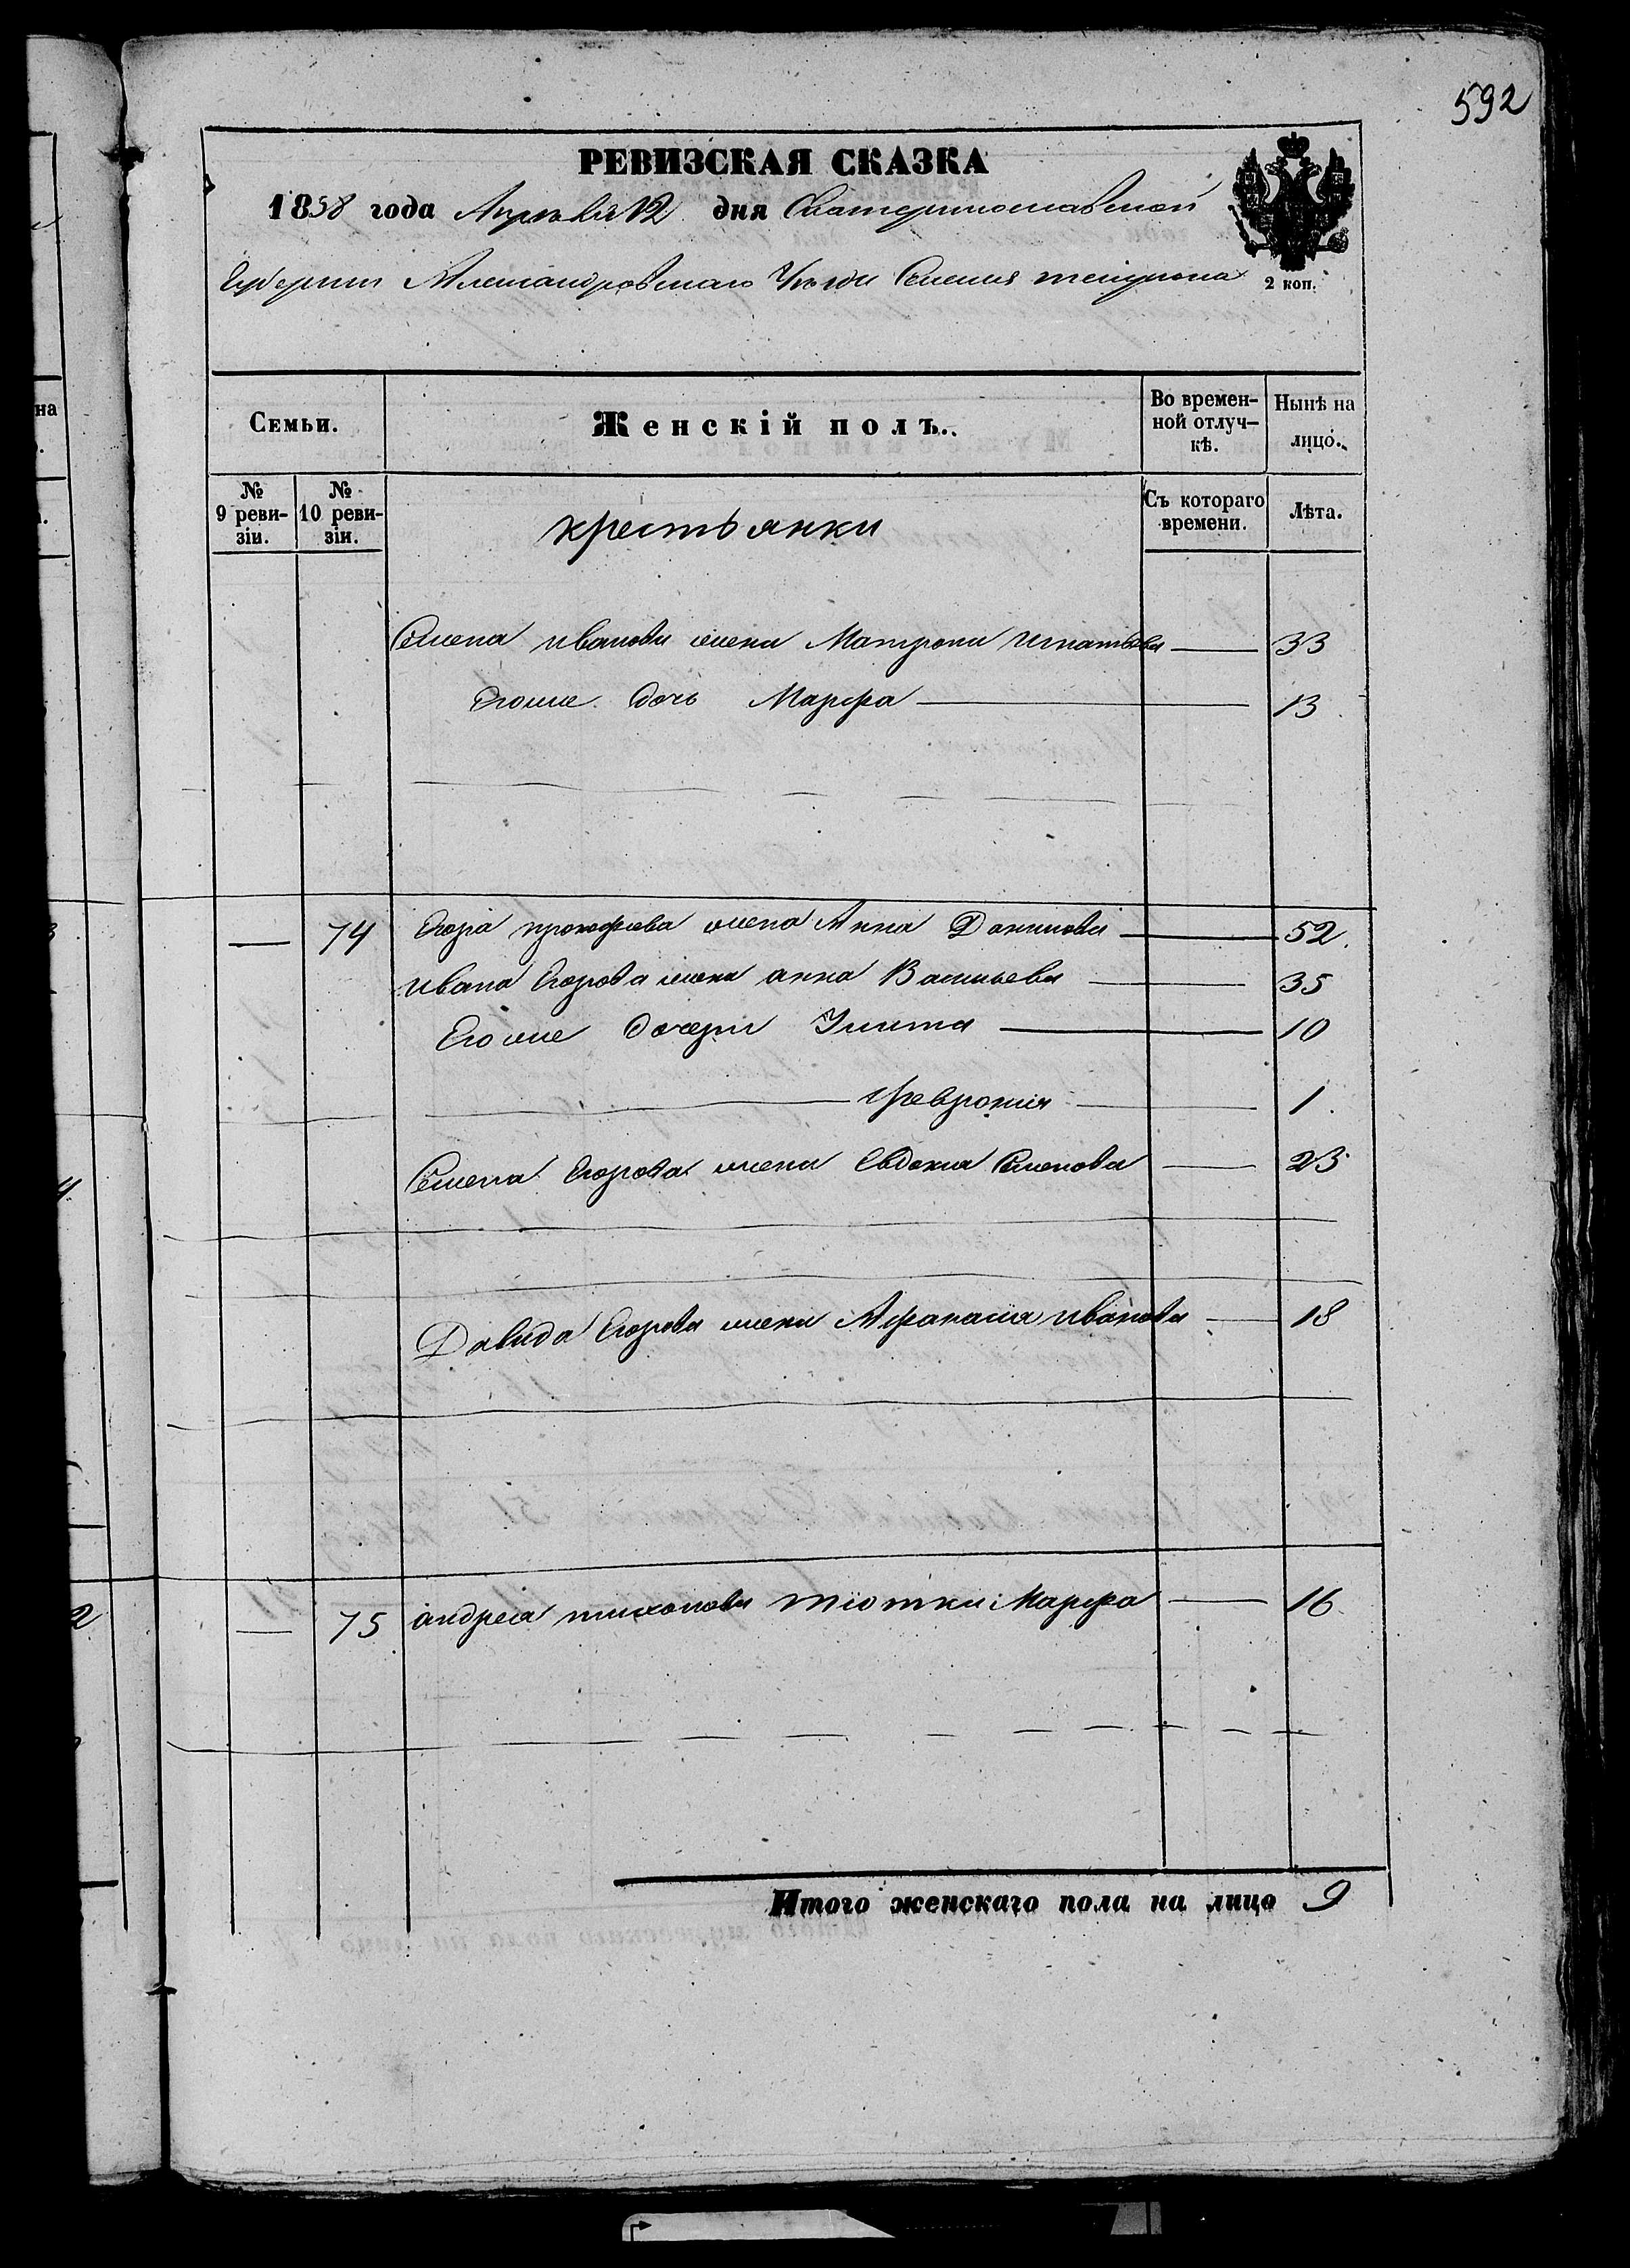 592
РЕВИЗСКАЯ СКАЗКА
1858 года Апреля 12 дня Екатеринославской
Губернии Александровскаго Уезда Селения
2 коп.
Семьи.
Женскій полъ.
Во времен-
ной отлуч-
кѣ.
Нынѣ на
лицо.
№
9 реви-
зіи.
№
10 реви-
зіи.
крестьянки
Съ котораго
времени.
Лѣта.
Семена иванова жена Матрона игнатьева — 33
Егоже дочь Марфа — 13
— 74 Егора прокофьева жена Анна Данилова — 52.
ивана Егорова жена анна Васильева — 35
Егоже дочери Улита — 10
— феврония — 1.
Семена Егорова жена Евдокия Семенова — 23
Давида Егорова жена Афанасия иванова — 18
— 75 андрея тихонова тіотки Марфа — 16
Итого женскаго пола на лицо 9